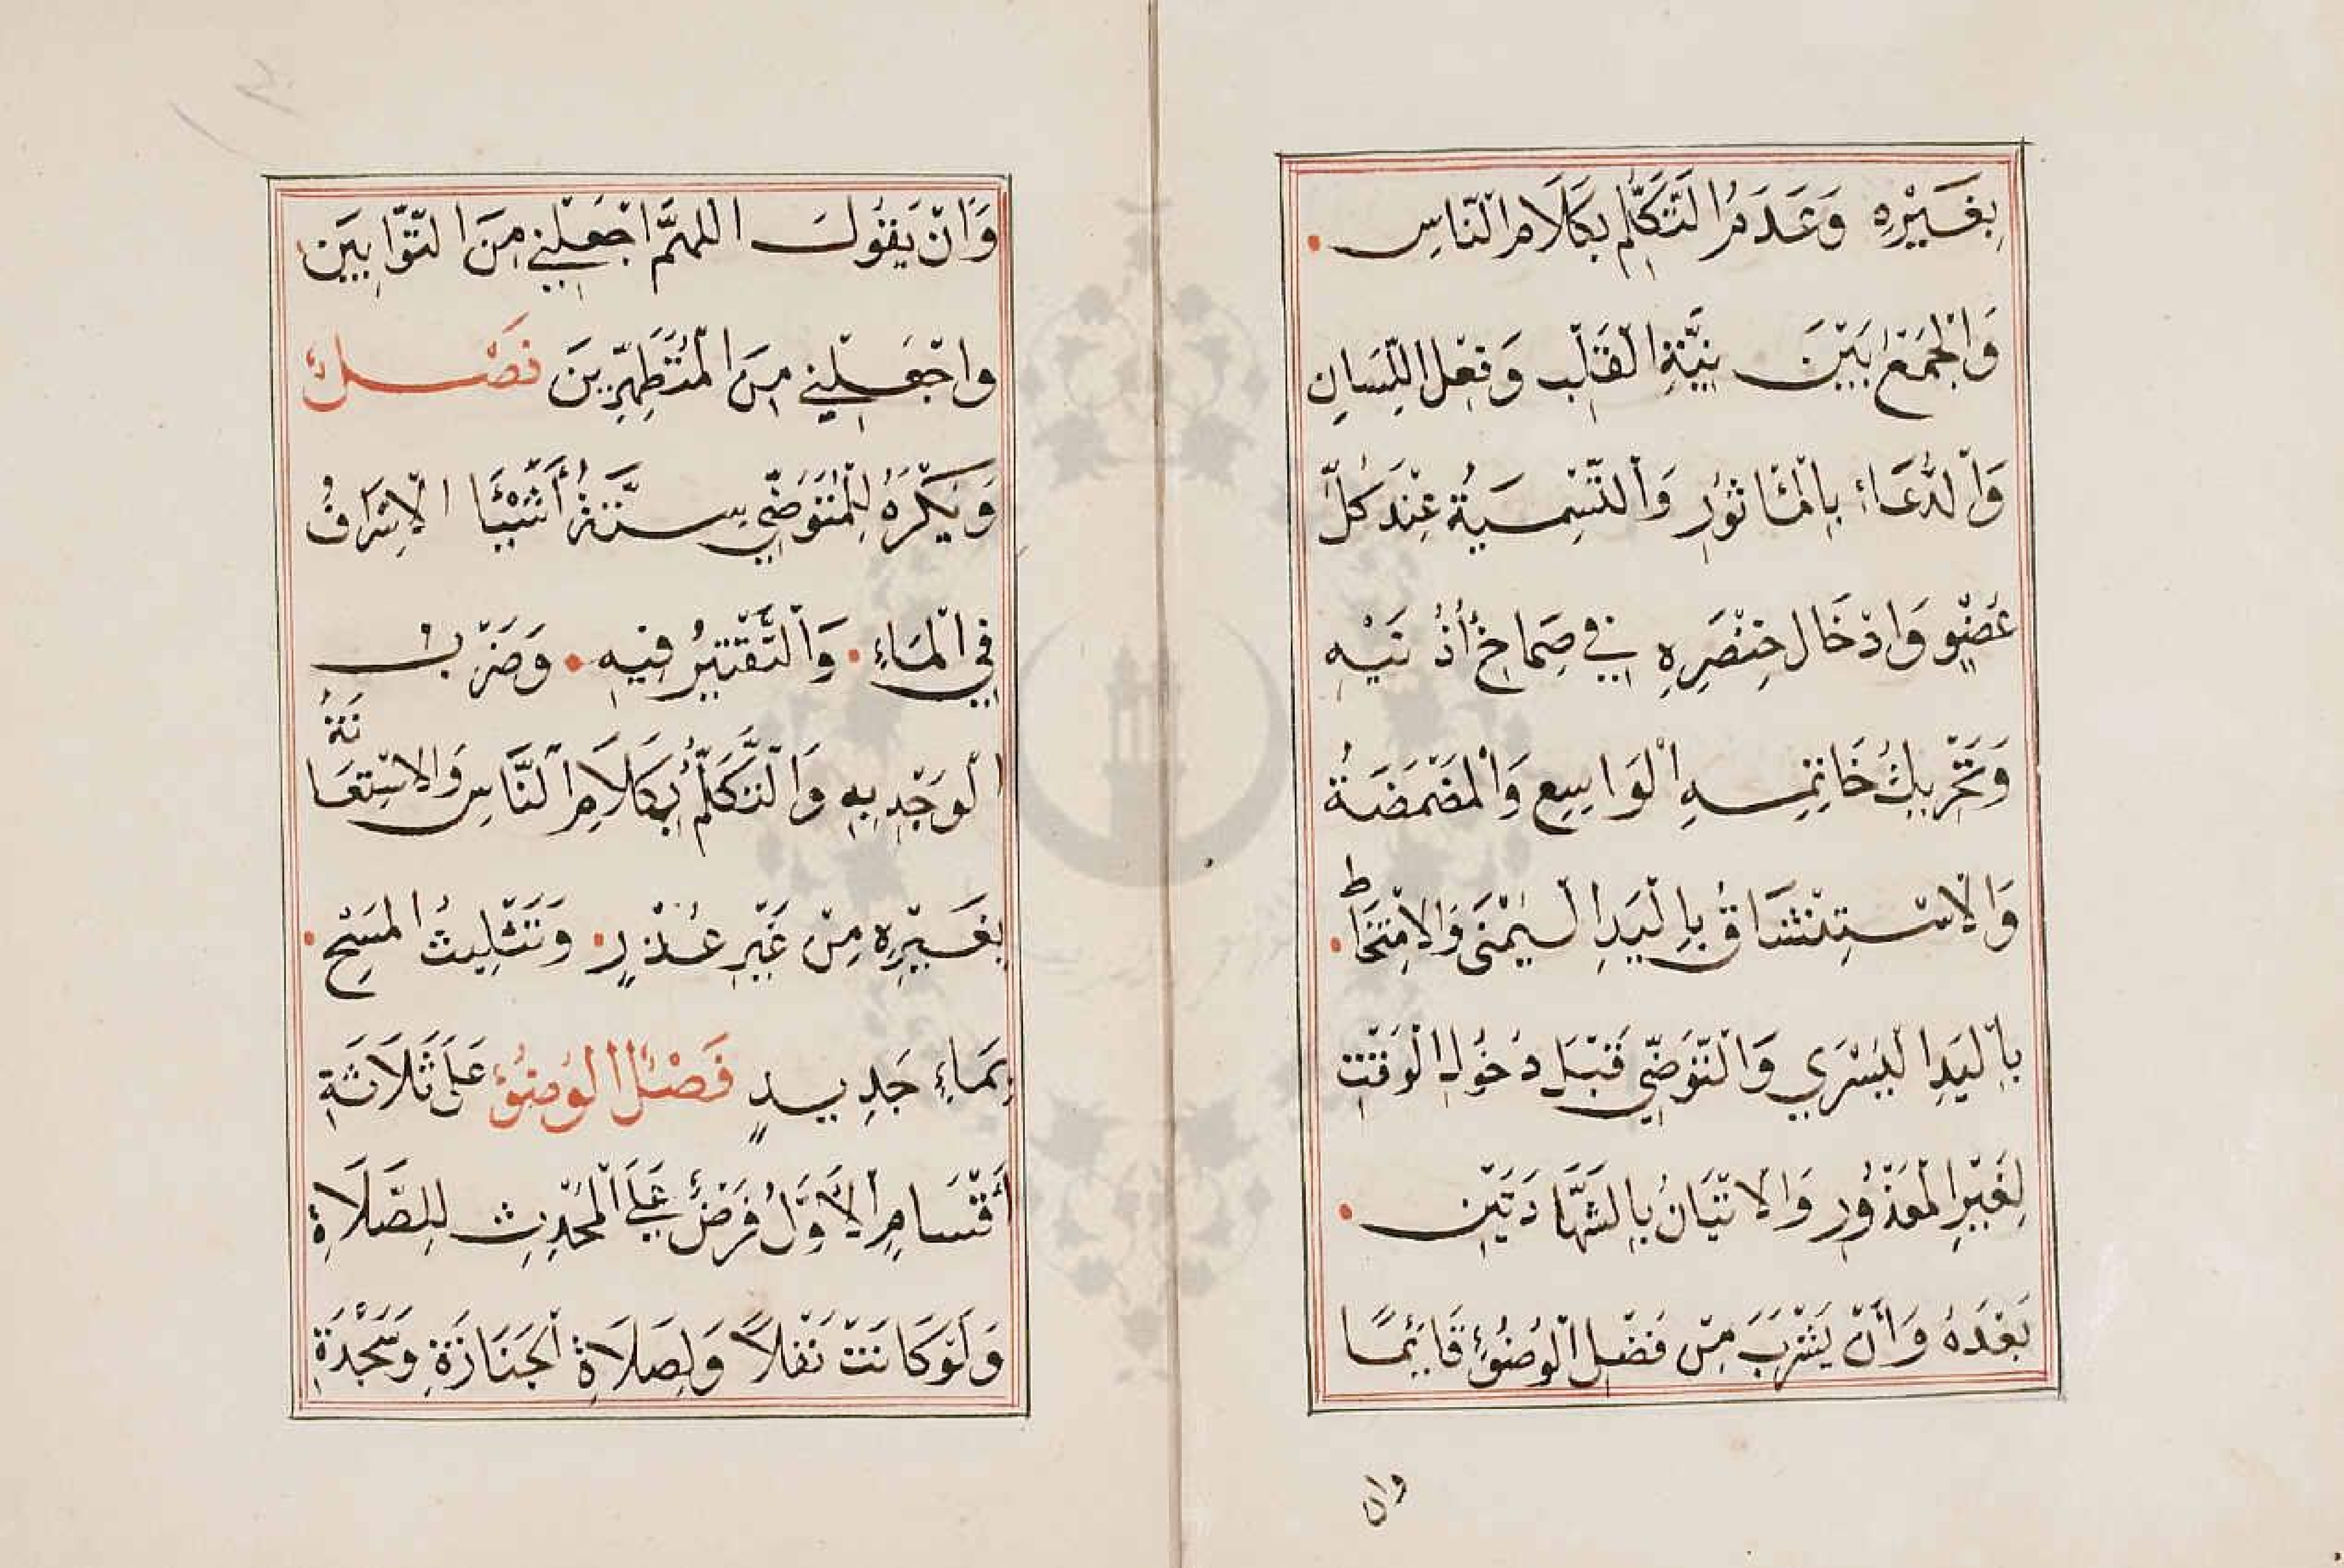 بِغَيْرِهِ وَعَدَمُ التَّكَلُّمِ بِكَلَامِ النَّاسِ
وَالْجَمْعُ بَيْنَ نِيَّةِ الْقَلْبِ وَفِعْلِ اللِّسَانِ
وَالدُّعَاءُ بِالْمَأْثُورِ وَالتَّسْمِيَةُ عِنْدَ كُلِّ
عُضْوٍ وَادْخَال خِنْصَرِهِ فِي صِمَاخِ أُذُنَيْهِ
وَتَحْرِيكُ خَاتِمِهِ الْوَاسِعِ وَالْمَضْمَضَةُ
وَالْاسْتِنْشَاقُ بِالْيَدِ الْيُمْنَى وَالْامْتِخَاطُ
بِالْيَدِ الْيُسْرَي وَالتَّوَضِّي قَبْلَ دُخُولِ الْوَقْتِ
لِغَيْرِ الْمَعْذُورِ وَالْاتْيَانُ بِالشَّهَادَتَيْنِ
بَعْدَهُ وَأَنْ يَشْرَبَ مِنْ فَضْلِ الْوُضُوْءِ قَائِمًا
وان
وَاَنْ يَقُولَ اللهُمَّ اجْعَلْنِي مِنَ التَّوَّابِينَ
وَاجْعَلْنِي مِنَ الْمُتَطَهِّرِينَ فَصْلٌ
وَيُكْرَهُ لِلْمُتَوَضِّي سِتَّةُ أَشْيَا الْاِسْرَافُ
فِي الْمَاءِ وَالتَّقْتِيرُ فِيهِ وَضَرْبُ
الْوَجْهِ بِهِ وَالتَّكَلُّمُ بِكَلَامِ النَّاسِ وَالاسْتِعَانَةُ
بِغَيْرِهِ مِنْ غَيْرِ عُذْرٍ وَتَثْلِيثُ الْمَسْحِ
بِمَاءٍ جَدِيدٍ فَصْلٌ الْوُضُوْءُ عَلَى ثَلَاثَةِ
أَقْسَامٍ الْأَوَّلُ فَرْضٌ عَلَى الْمُحْدِثِ لِلصَّلَاةِ
وَلَوْ كَانَتْ نَفْلًا وَلِصَلَاةِ الْجَنَازَةِ وَسَجْدَةِ